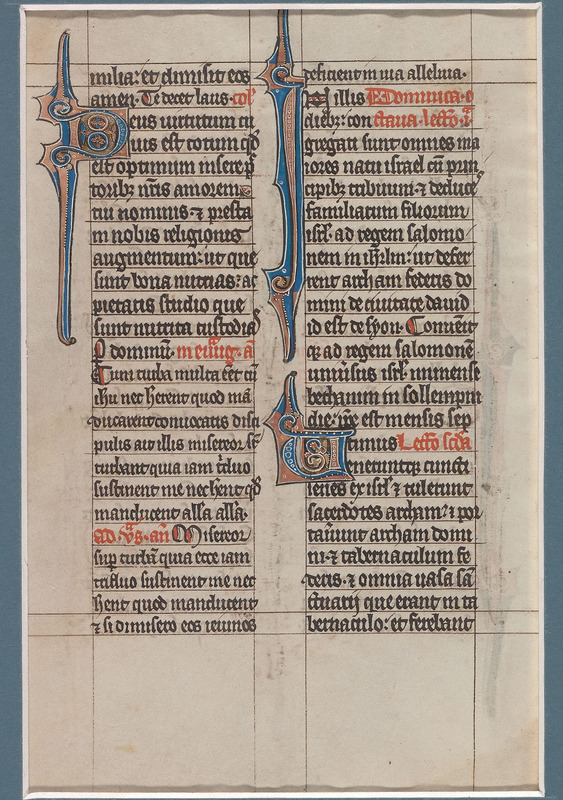 milia: et dimisit eos
amen. Te decet laus. coll
Deus uirtutum cu
ius est totum qd
est optimum insere p
toribz nris amorem
tui nominis. ⁊ presta
in nobis religionis
augmentum: ut que
sunt bona nutrias: ac
pietatis studio que
sunt nutrita custodias
P dominum. in euug. a
Cum turba multa eet cu
ihu nec herent quod ma
ducarent conuocatis disci
pulis ait illis misereor sr
turbam quia iam triduo
sustinent me nec hent qd
manducent alla alla.
ad vs. an Misereor
sup turba quia ecce iam
triduo sustinent me nec
hent quod manducent
⁊ si dimisero eos ieiunos
deficient in uia alleluia.
In illis Dominica o
diebz: con ctaua. lectio. i
gregati sunt omnes ma
iores natu israel cu prin
cipibz tribuum. ⁊ duces
familiarum filiorum
isrl. ad regem salomo
nem in ihrlm: ut defer
rent archam federis do
mini de ciuitate dauid
id est de syon. Conuenit
qz ad regem salomone
uniuersus isrl. in mense
bethanim in sollempni
die: ipse est mensis sep
timus Lectio scda
Ueneruntqz cuncti
senes ex isrl ⁊ tulerunt
sacerdotes archam: ⁊ por
tauunt archam domi
ni. ⁊ tabernaculum fe
deris. ⁊ omnia uasa sa
ctuarij que erant in ta
bernaculo: et ferebant